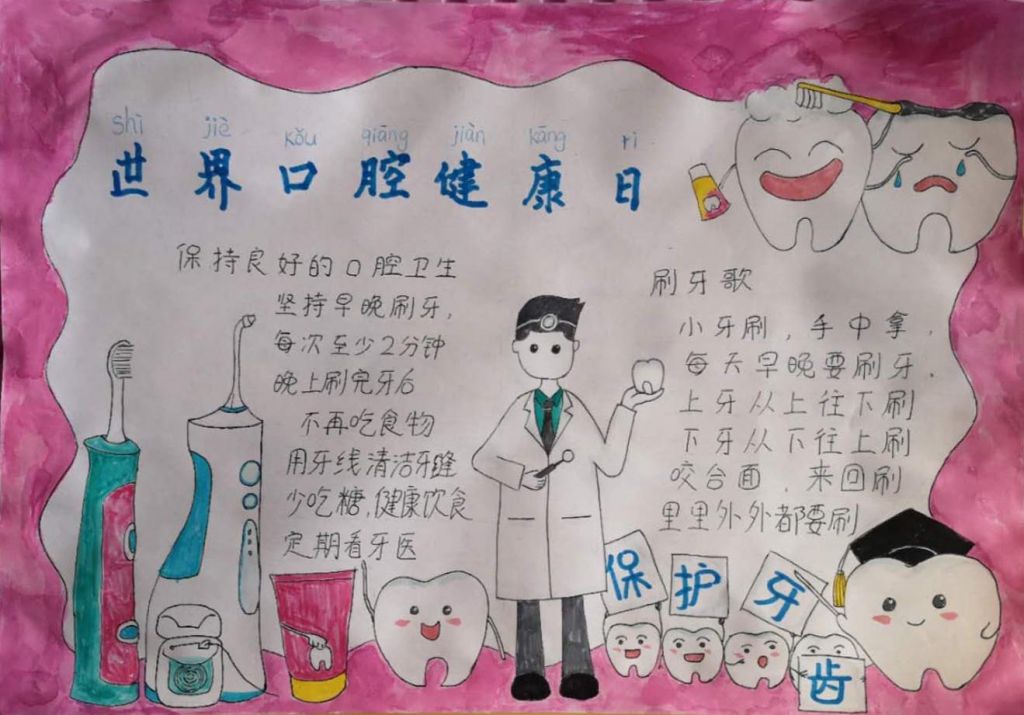 shì jiè kǒu qiāng jiàn kāng rì
世界口腔健康日
保持良好的口腔卫生
坚持早晚刷牙，
每次至少2分钟
晚上刷完牙后
不再吃食物
用牙线清洁牙缝
少吃糖，健康饮食
定期看牙医
刷牙歌
小牙刷，手中拿，
每天早晚要刷牙，
上牙从上往下刷
下牙从下往上刷
咬合面，来回刷
里里外外都要刷
保护牙齿